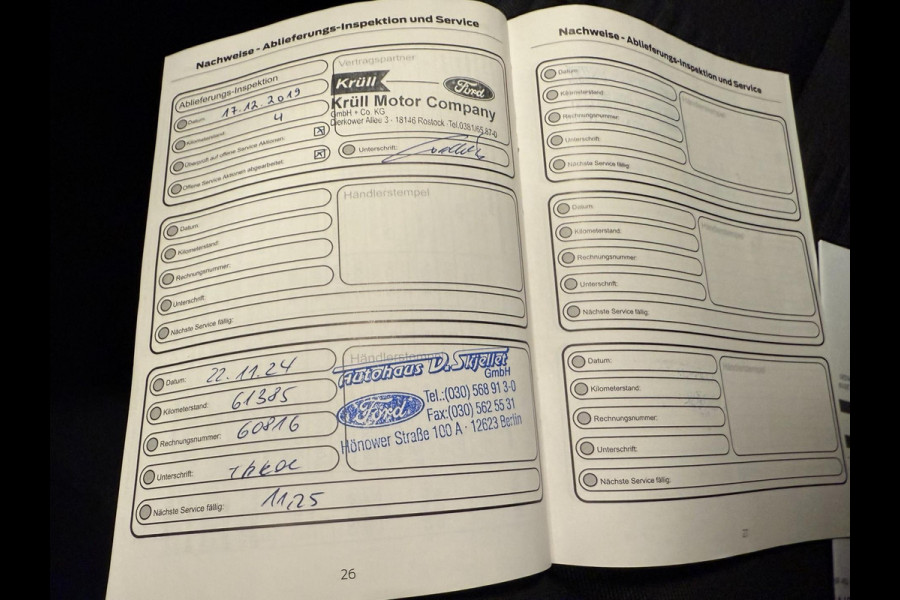 Nachweise - Ablieferungs-Inspektion und Service
Ablieferungs-Inspektion
Datum: 17.12.2019
Kilometerstand: 4
Überprüft auf offene Service Aktionen:
Offene Service Aktionen abgearbeitet:
Vertragspartner
Krüll
Ford
Krüll Motor Company
GmbH + Co. KG
Dierkower Allee 3 · 18146 Rostock · Tel.0381/65 87-0
Unterschrift:
Datum:
Kilometerstand:
Rechnungsnummer:
Unterschrift:
Nächste Service fällig:
Händlerstempel
Datum: 22.11.24
Kilometerstand: 61385
Rechnungsnummer: 60816
Unterschrift:
Nächste Service fällig: 11,25
Händlerstempel
Autohaus D. Skjellet
GmbH
Ford
Tel.:(030) 568 91 3-0
Fax:(030) 562 55 31
Hönower Straße 100 A · 12623 Berlin
26
Nachweise - Ablieferungs-Inspektion und Service
Datum:
Kilometerstand:
Rechnungsnummer:
Unterschrift:
Nächste Service fällig:
Händlerstempel
Datum:
Kilometerstand:
Rechnungsnummer:
Unterschrift:
Nächste Service fällig:
Händlerstempel
Datum:
Kilometerstand:
Rechnungsnummer:
Unterschrift:
Nächste Service fällig:
Händlerstempel